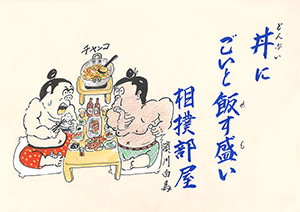 丼に
どんぶい
ごいと飯す盛い
めしも
相撲部屋
チャンコ